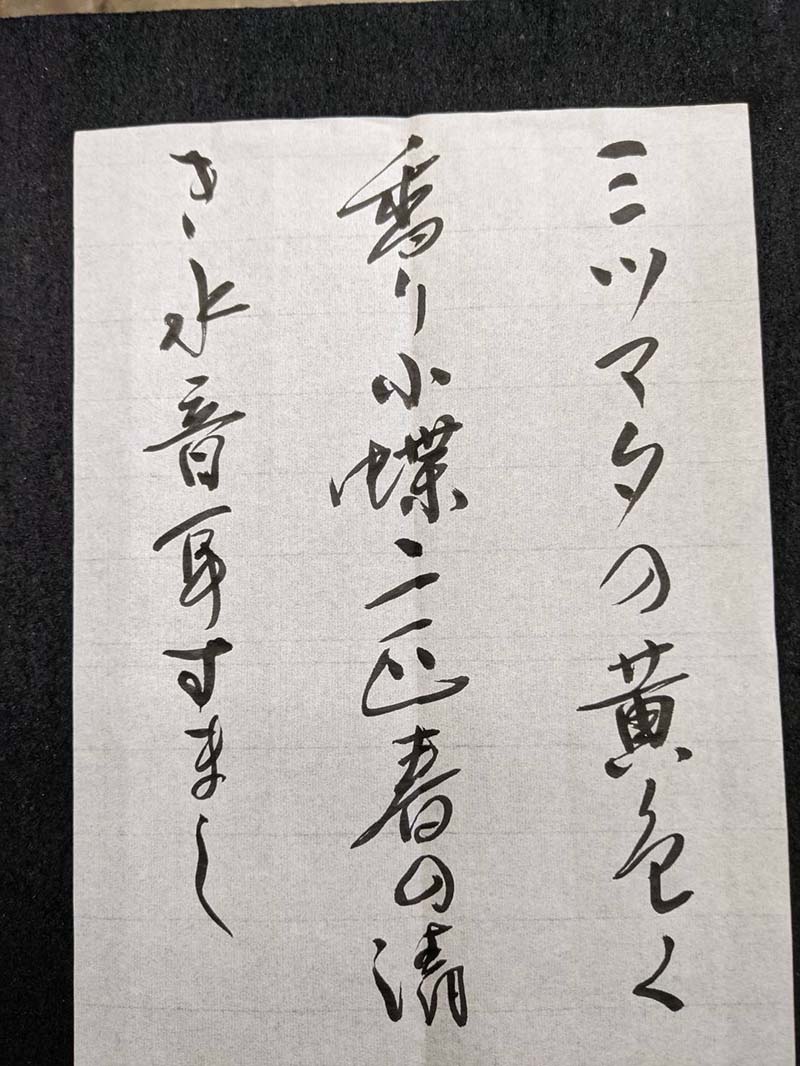 三ツマタの黄色く
香り小蝶二匹春の清
き水音耳すまし